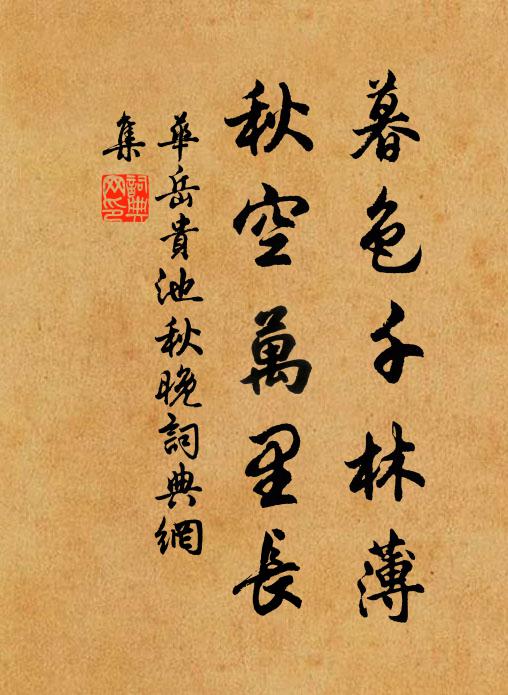 暮色千林薄
秋空萬里長
華岳貴池秋晚詞典網
集
詞典
网印